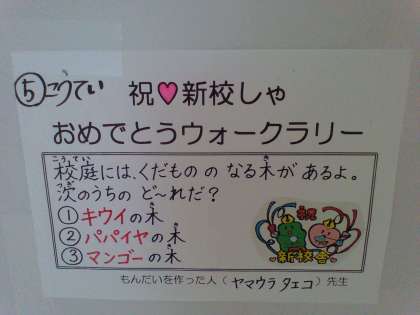 ⑤こうてい
祝♥新校しゃ
おめでとうウォークラリー
こうてい き
校庭には、くだもの の なる木が あるよ。
つぎ
次のうちの ど〜れだ?
①キウイの木
②パパイヤの木
③マンゴーの木
祝
新校舎
もんだいを作った人(ヤマウラ タエコ)先生